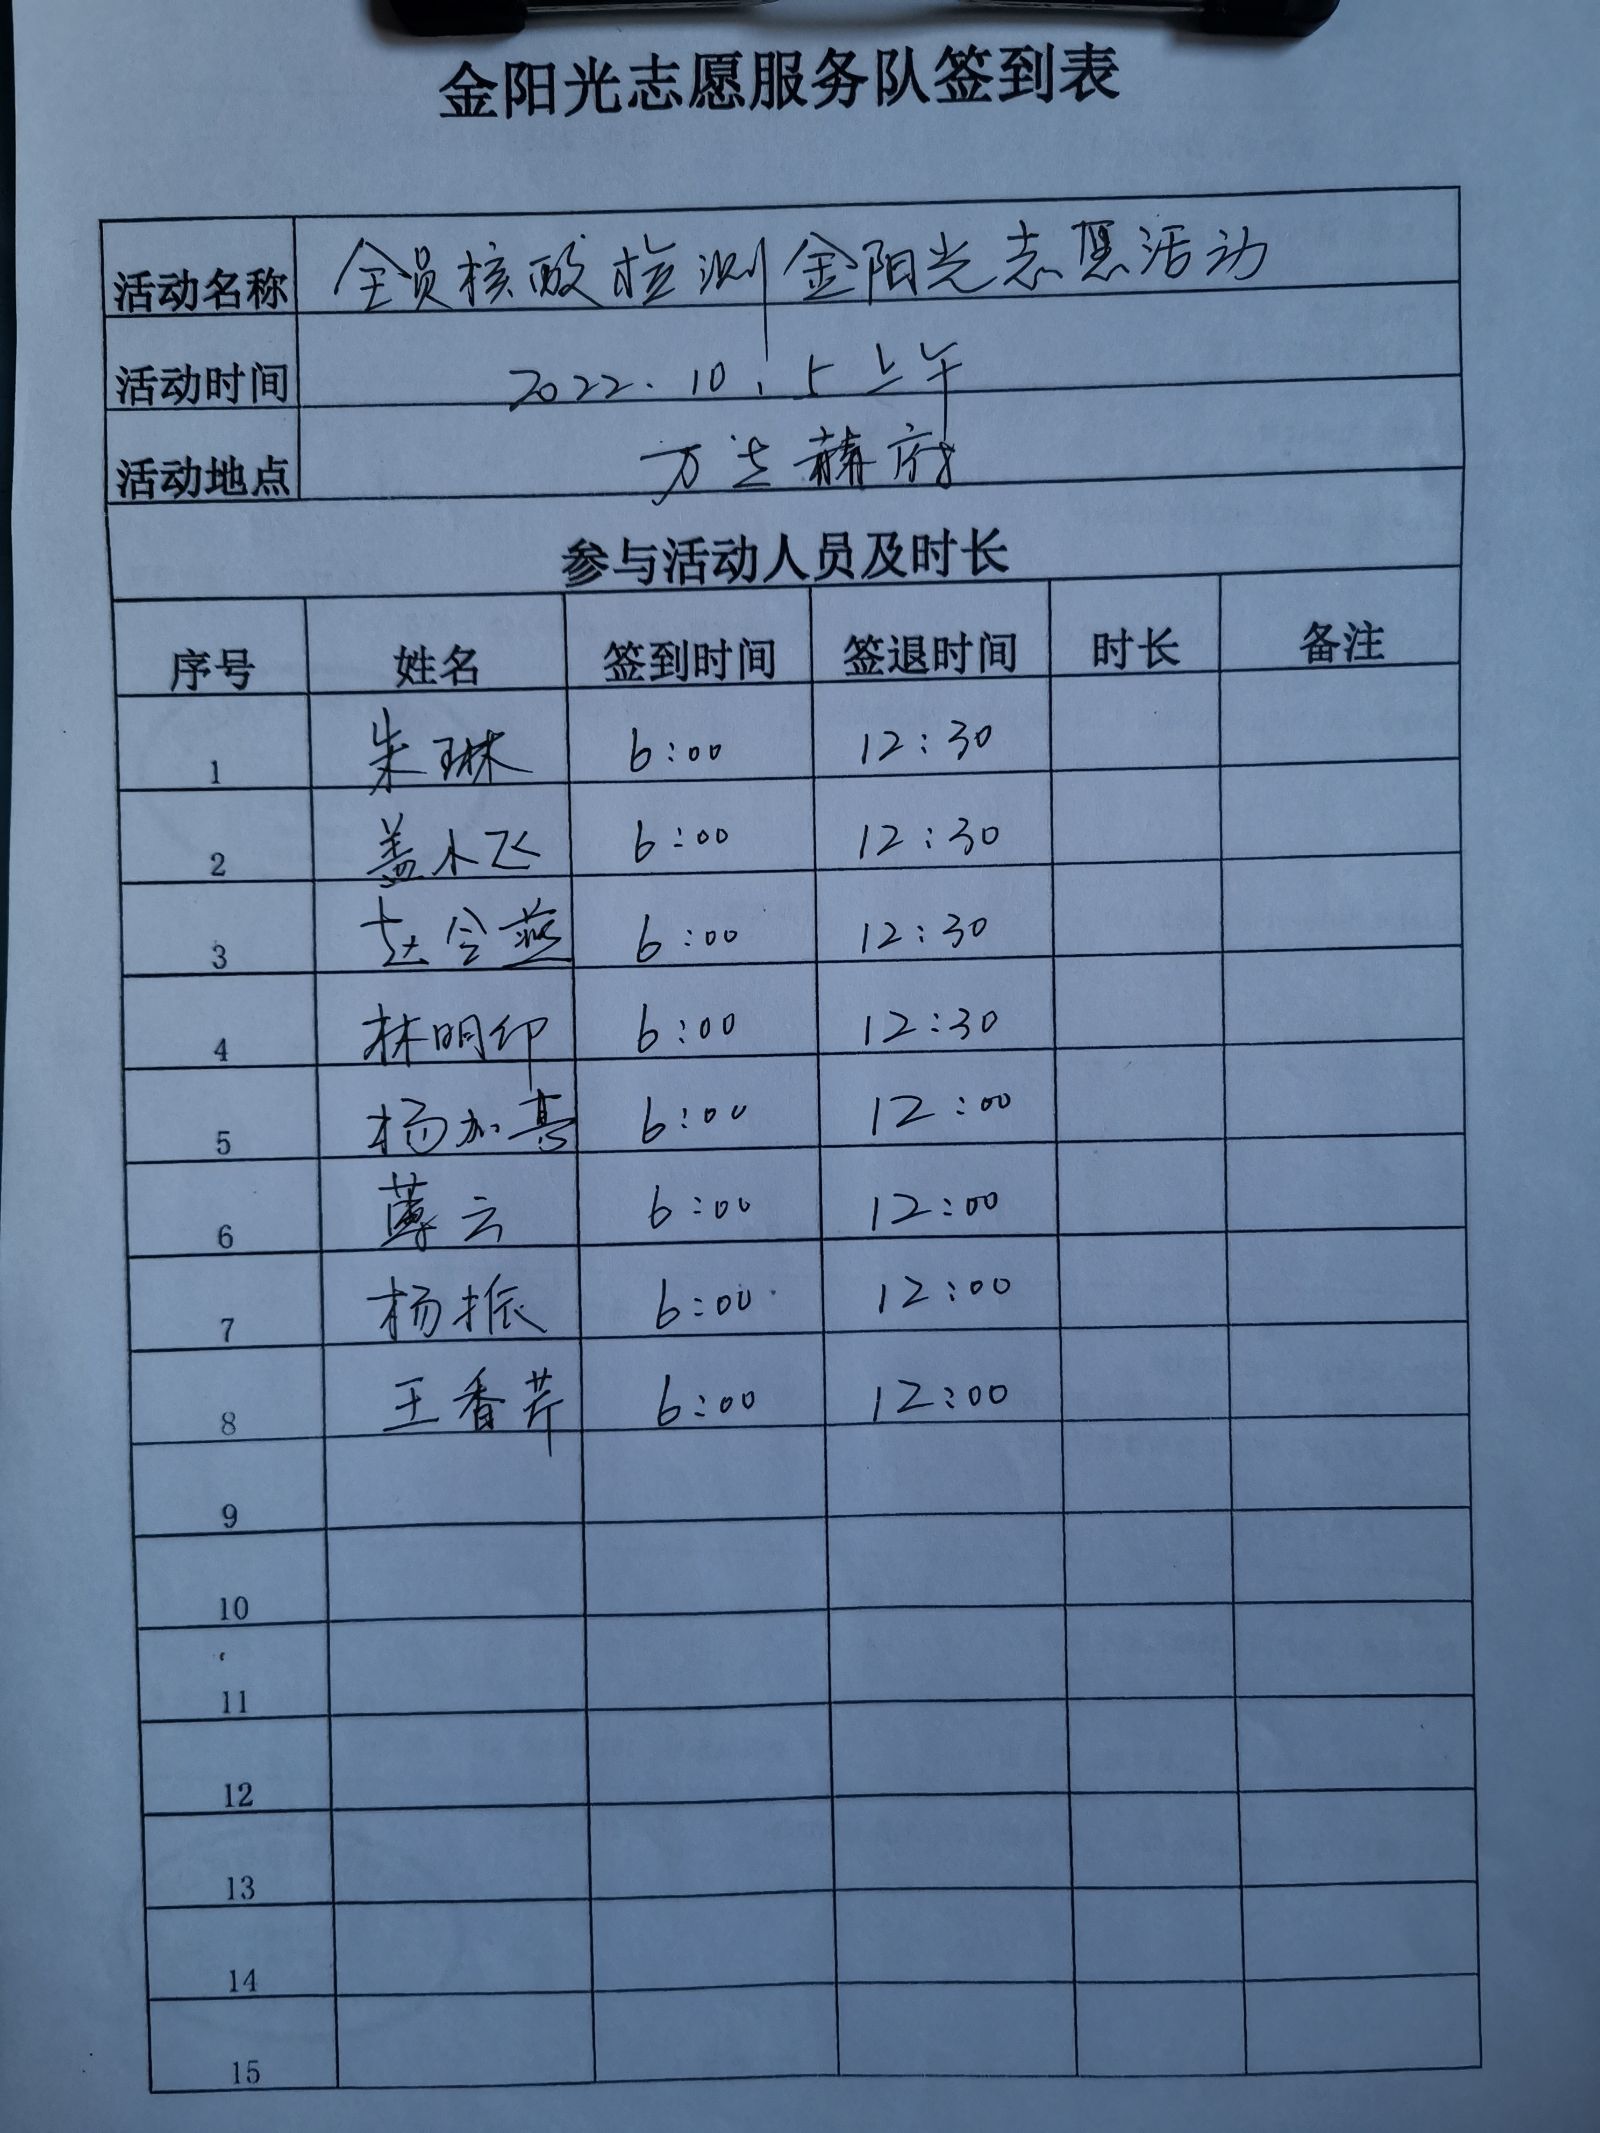 金阳光志愿服务队签到表
活动名称 全员核酸检测金阳光志愿活动
活动时间 2022.10.5上午
活动地点 万达赫府
参与活动人员及时长
序号 姓名 签到时间 签退时间 时长 备注
1 朱琳 6:00 12:30
2 盖小飞 6:00 12:30
3 赵会燕 6:00 12:30
4 林明印 6:00 12:30
5 杨加 6:00 12:00
6 薄云 6:00 12:00
7 杨振 6:00 12:00
8 王香芹 6:00 12:00
9
10
11
12
13
14
15